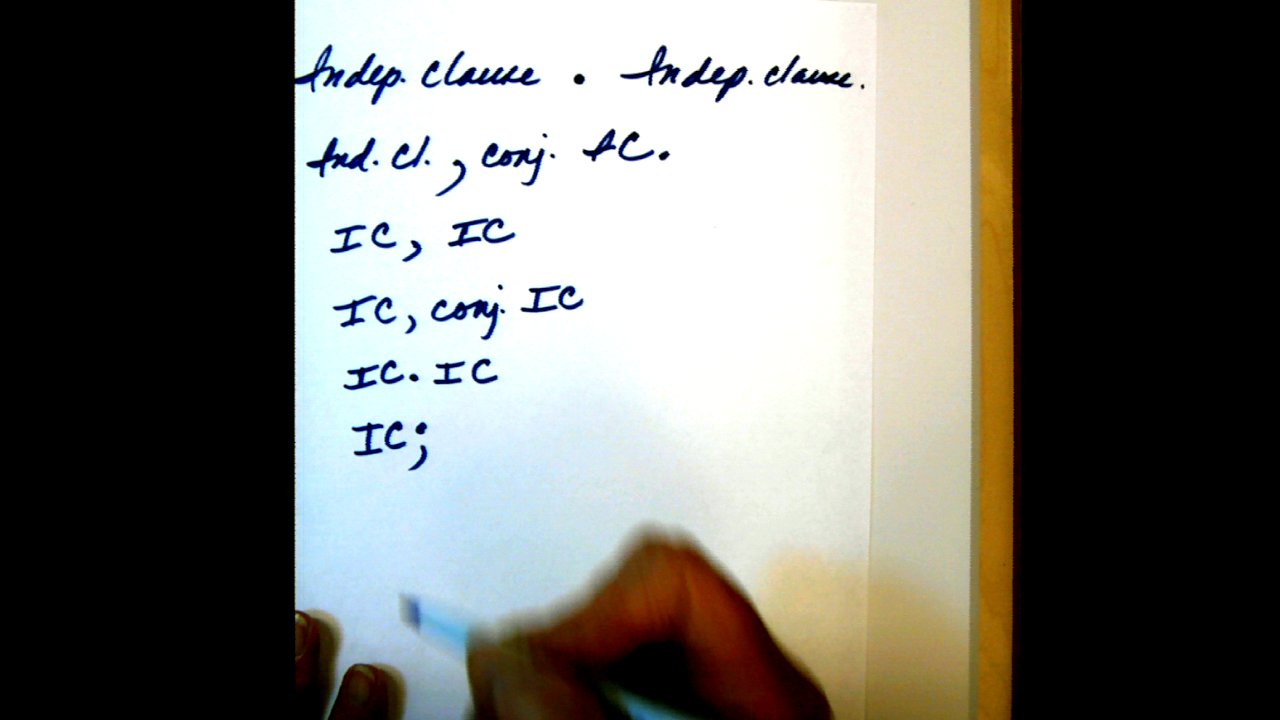 Indep. clause . Indep. clause.
Ind. cl. , conj. IC.
IC, IC
IC, conj. IC
IC. IC
IC;